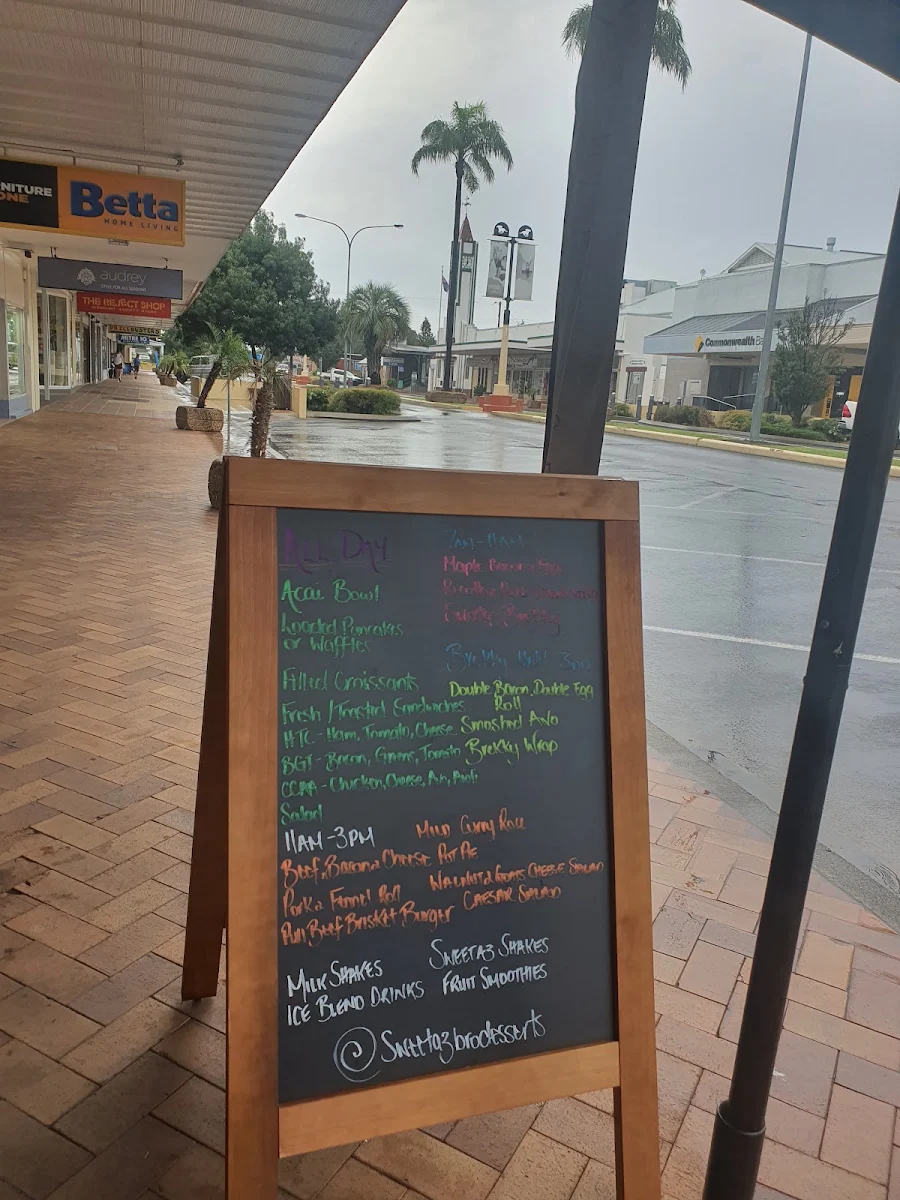 NITURE
ONE
Betta
HOME LIVING
audrey
THE REJECT SHOP
CommonwealthBa
All Day
Acai Bowl
Loaded Pancakes
or Waffles
Filled Croissants
Fresh / Toasted Sandwiches
HTC - Ham, Tomato, Cheese
BGT - Bacon, Greens, Tomato
CCAA - Chicken, Cheese, Avo, Aioli
Salad
7am-11am
Maple Bacon & Egg
3pm
Double Bacon, Double Egg
Roll
Smashed Avo
Brekky Wrap
11AM-3PM
Mild Curry Roll
Beef, Bacon & Cheese Pot Pie
Walnut & Goats Cheese Salad
Pork & Fennel Roll
Caesar Salad
Pull Beef Brisket Burger
Milk Shakes
Sweetaz Shakes
Ice Blend Drinks
Fruit Smoothies
@Sweetazbrodesserts